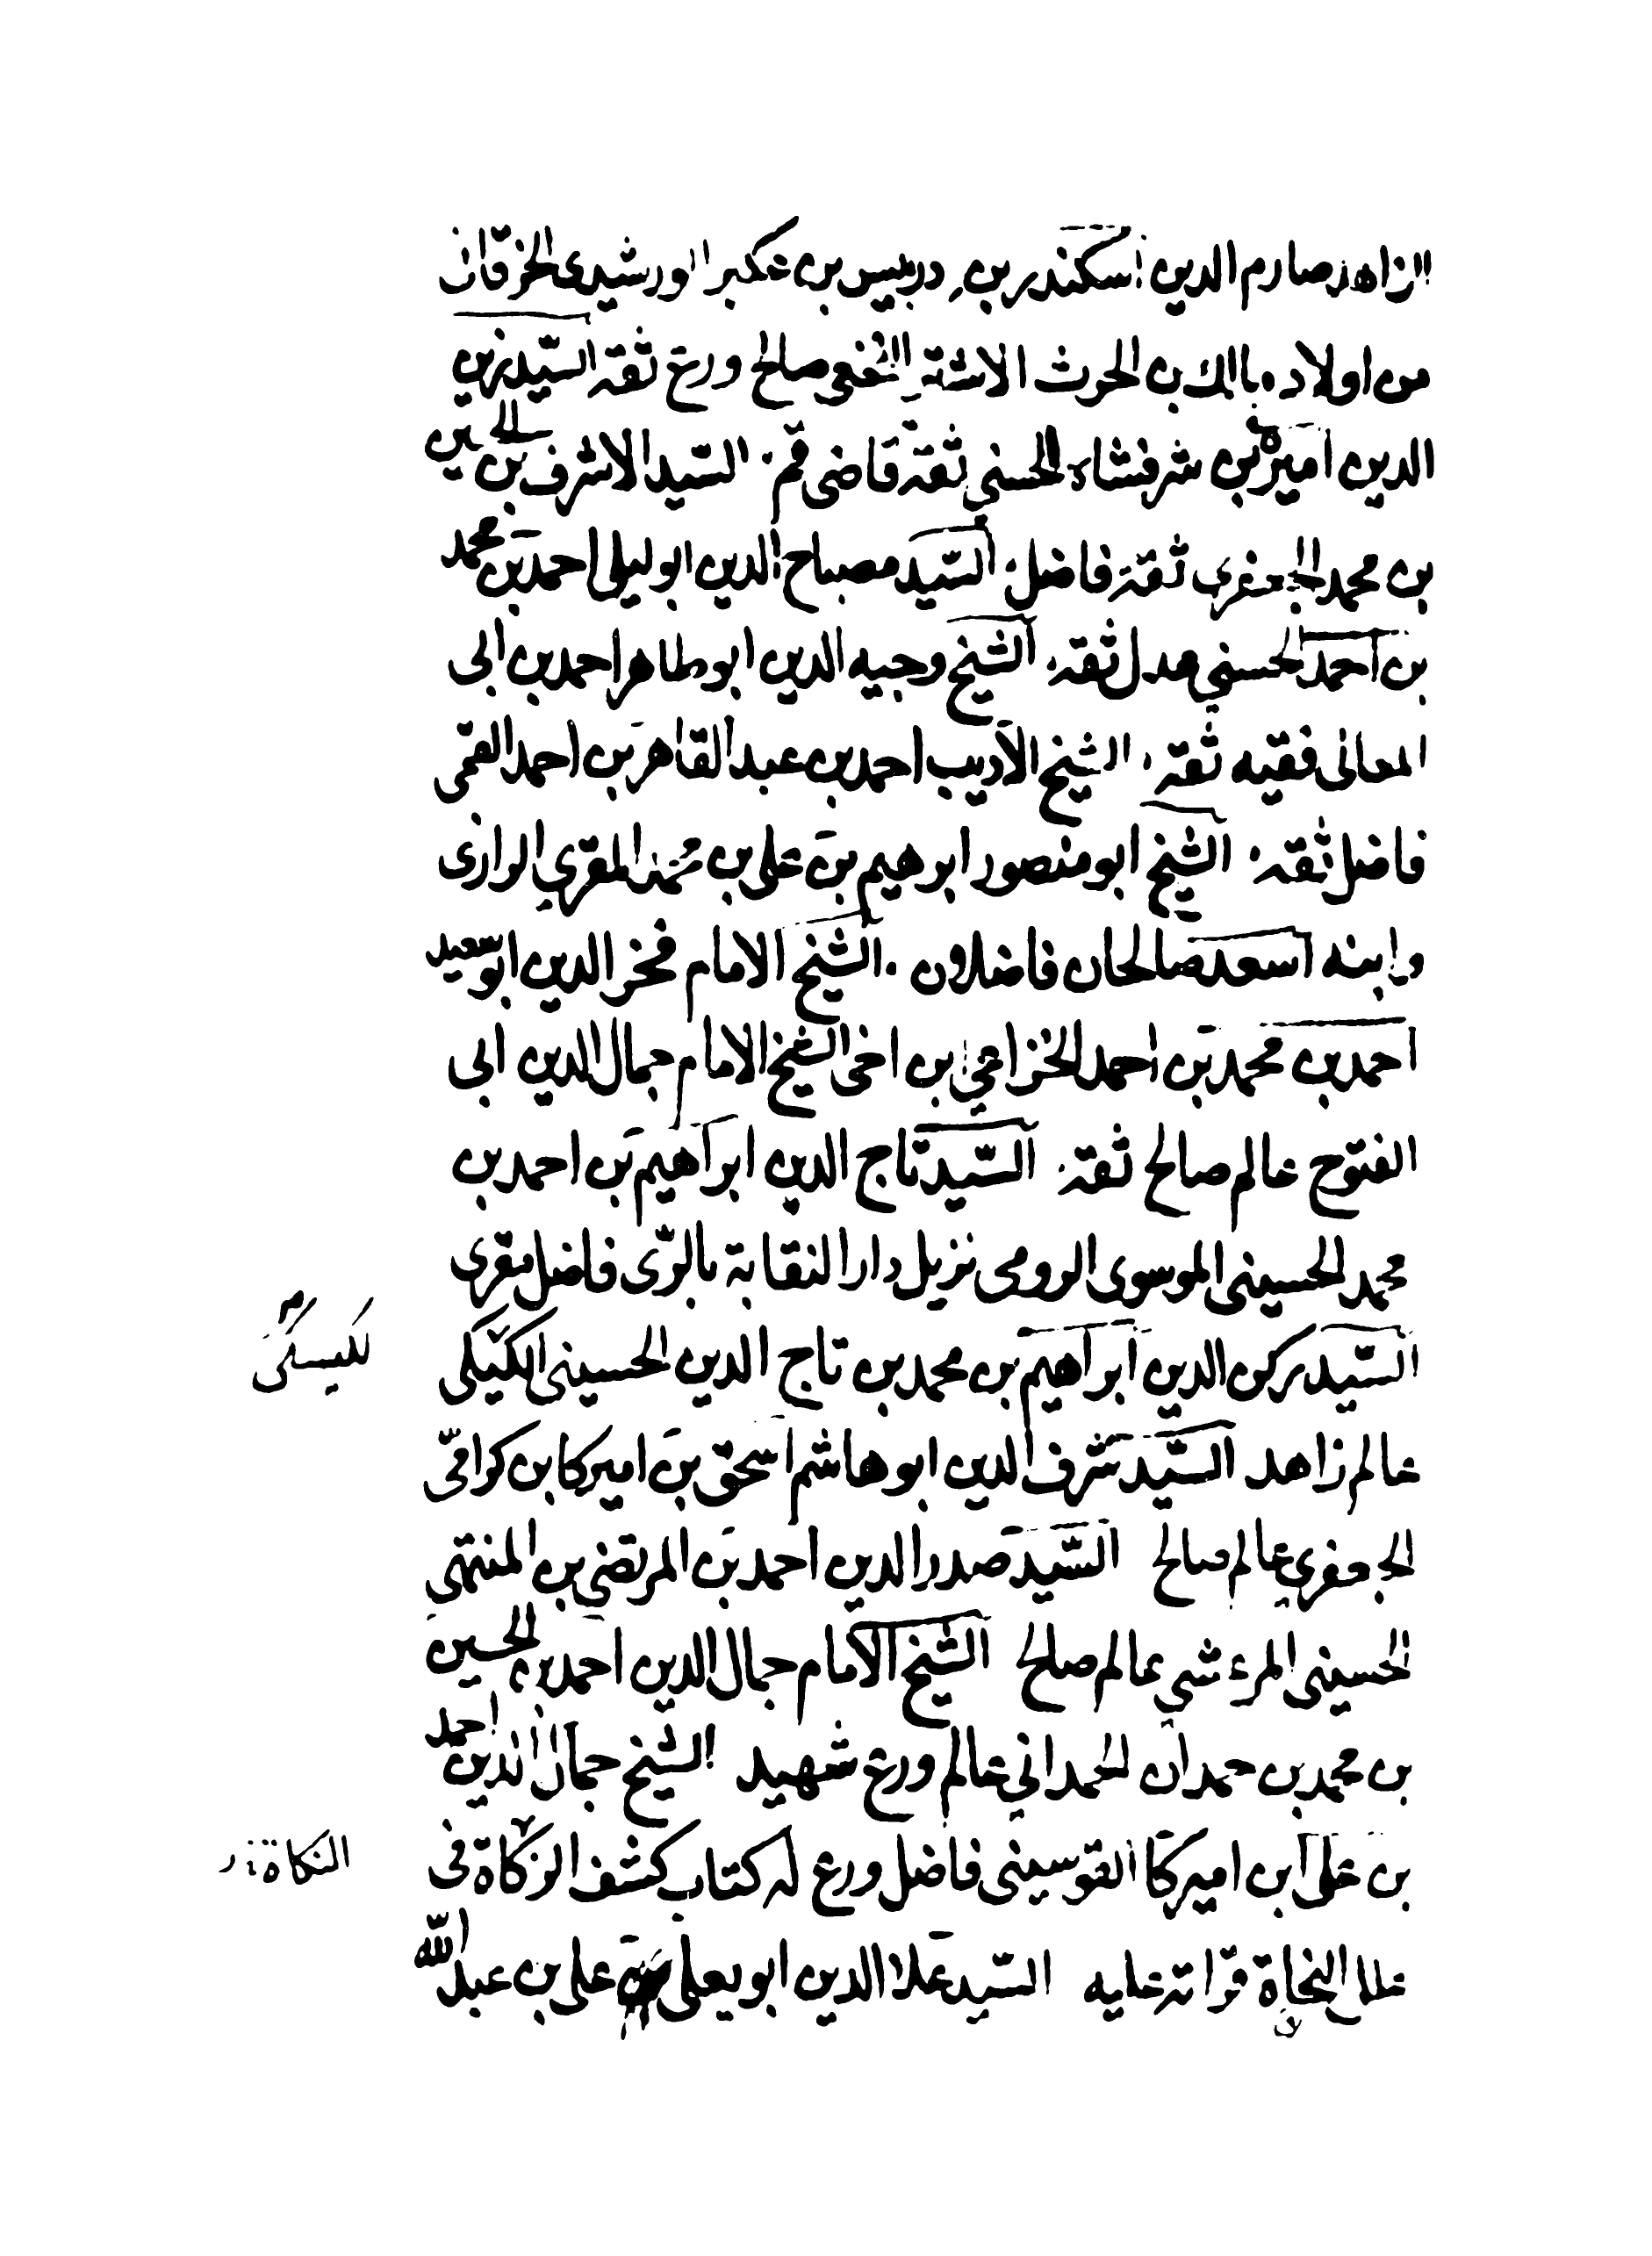 الزاهد صارم الدين اسكندر بن دربيس بن عكبر الورشيدى الخرقان
من اولاد مالك بن الحرث الاشتر النخعى صالح ورع ثقة السيد زين
الدين اميرة بن شرفشاه الحسني ثقة قاضى قم السيد الاشرف بن الحسين
بن محمد الجعفرى ثقة فاضل السيد مصباح الدين ابو ليلى احمد بن محمد
بن احمد الحسني عدل ثقة الشيخ وجيه الدين ابو طاهر احمد بن ابى
المعالى فقيه ثقة الشيخ الاديب احمد بن عبد القاهر بن احمد القمى
فاضل ثقة الشيخ ابو منصور ابرهيم بن على بن محمد المقري الرازى
وابنه اسعد صالحان فاضلان الشيخ الامام فخر الدين ابو سعيد
احمد بن محمد بن احمد الخزاعي ابن اخى الشيخ الامام جمال الدين ابى
الفتوح عالم صالح ثقة السيد تاج الدين ابراهيم بن احمد بن
محمد الحسينى الموسوى الرومى نزيل دار النقابة بالرى فاضل مقرى
السيد ركن الدين ابراهيم بن محمد بن تاج الدين الحسينى الكيكى
عالم زاهد السيد شرف الدين ابو هاشم اسحق بن اميركا بن كرامى
الجعفري عالم صالح السيد صدر الدين احمد بن المرتضى بن المنتهى
الحسينى المرعشي عالم صالح الشيخ الامام جمال الدين احمد بن الحسين
بن محمد بن حمدان الحمداني عالم ورع شهيد الشيخ جمال الدين احمد
بن على ابن اميركا القوسينى فاضل ورع له كتاب كشف الزكاة فى
النكاة
علل النحاة قراته عليه السيد علا الدين ابو يعلى بن على بن عبد الله